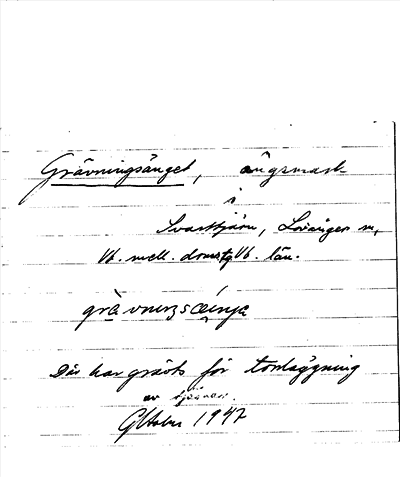 Grävningsänget, ängsmark
i
Svarttjärn, Lövånger sn,
Vb. mell. doms. Vb. län.
grävniŋsæŋja
Där har grävts för torrläggning
av tjärnen.
Oktober 1947